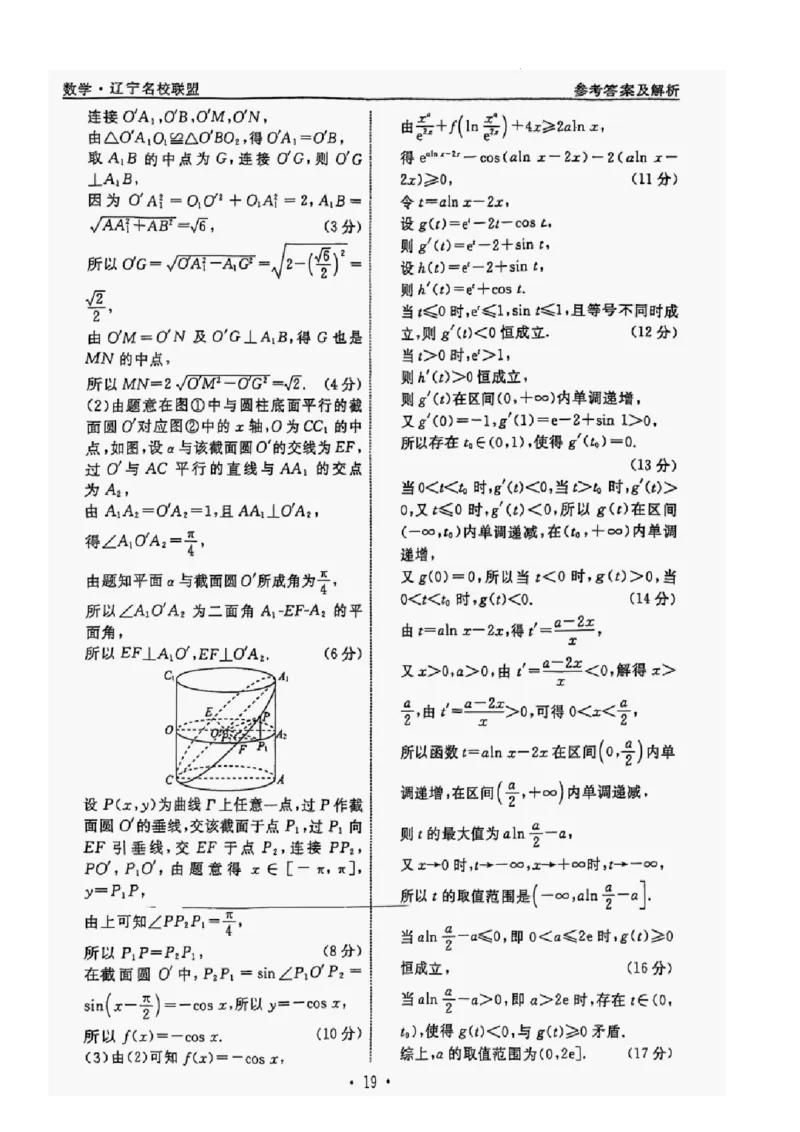 数学·辽宁名校联盟
参考答案及解析
连接 O′A₁,O′B,O′M,O′N,
由△O′A₁O₁≌△O′BO₂,得O′A₁=O′B,
取 A₁B 的中点为 G,连接 O′G,则 O′G
⊥A₁B,
因为 O′A₁²=O₁O′²+O₁A₁²=2,A₁B=
√(AA₁²+AB²)=√6, (3分)
所以O′G=√(O′A₁²−A₁G²)=√(2−(√6/2)²)=
√2/2,
由 O′M=O′N 及 O′G⊥A₁B,得 G 也是
MN 的中点,
所以MN=2√(O′M²−O′G²)=√2. (4分)
(2)由题意在图①中与圆柱底面平行的截
面圆 O′对应图②中的 x 轴,O为CC₁ 的中
点,如图,设 α 与该截面圆O′的交线为EF,
过 O′与 AC 平行的直线与 AA₁ 的交点
为 A₂,
由 A₁A₂=O′A₂=1,且 AA₁⊥O′A₂,
得∠A₁O′A₂=π/4,
由题知平面 α 与截面圆O′所成角为π/4,
所以∠A₁O′A₂ 为二面角 A₁-EF-A₂ 的平
面角,
所以 EF⊥A₁O′,EF⊥O′A₂. (6分)
C₁
A₁
E
P
O
O′
A₂
F
P₁
C
A
设 P(x,y)为曲线 Γ 上任意一点,过 P 作截
面圆 O′的垂线,交该截面于点 P₁,过 P₁ 向
EF 引垂线,交 EF 于点 P₂,连接 PP₂,
PO′,P₁O′,由题意得 x∈[−π,π],
y=P₁P,
由上可知∠PP₂P₁=π/4,
所以 P₁P=P₂P₁, (8分)
在截面圆 O′ 中,P₂P₁=sin∠P₁O′P₂=
sin(x−π/2)=−cos x,所以 y=−cos x,
所以 f(x)=−cos x. (10分)
(3)由(2)可知 f(x)=−cos x,
由xᵃ/e²ˣ+f(ln xᵃ/e²ˣ)+4x≥2aln x,
得 e^(aln x−2x)−cos(aln x−2x)−2(aln x−
2x)≥0, (11分)
令 t=aln x−2x,
设 g(t)=eᵗ−2t−cos t,
则 g′(t)=eᵗ−2+sin t,
设 h(t)=eᵗ−2+sin t,
则 h′(t)=eᵗ+cos t.
当 t≤0 时,eᵗ≤1,sin t≤1,且等号不同时成
立,则 g′(t)<0 恒成立. (12分)
当 t>0 时,eᵗ>1,
则 h′(t)>0 恒成立,
则 g′(t)在区间(0,+∞)内单调递增,
又 g′(0)=−1,g′(1)=e−2+sin 1>0,
所以存在 t₀∈(0,1),使得 g′(t₀)=0.
(13分)
当 0<t<t₀ 时,g′(t)<0,当 t>t₀ 时,g′(t)>
0,又 t≤0 时,g′(t)<0,所以 g(t)在区间
(−∞,t₀)内单调递减,在(t₀,+∞)内单调
递增,
又 g(0)=0,所以当 t<0 时,g(t)>0,当
0<t<t₀ 时,g(t)<0. (14分)
由 t=aln x−2x,得 t′=(a−2x)/x,
又 x>0,a>0,由 t′=(a−2x)/x<0,解得 x>
a/2,由 t′=(a−2x)/x>0,可得 0<x<a/2,
所以函数 t=aln x−2x 在区间(0,a/2)内单
调递增,在区间(a/2,+∞)内单调递减,
则 t 的最大值为 aln a/2−a,
又 x→0 时,t→−∞,x→+∞时,t→−∞,
所以 t 的取值范围是(−∞,aln a/2−a].
当 aln a/2−a≤0,即 0<a≤2e 时,g(t)≥0
恒成立, (16分)
当 aln a/2−a>0,即 a>2e 时,存在 t∈(0,
t₀),使得 g(t)<0,与 g(t)≥0 矛盾.
综上,a 的取值范围为(0,2e]. (17分)
· 19 ·